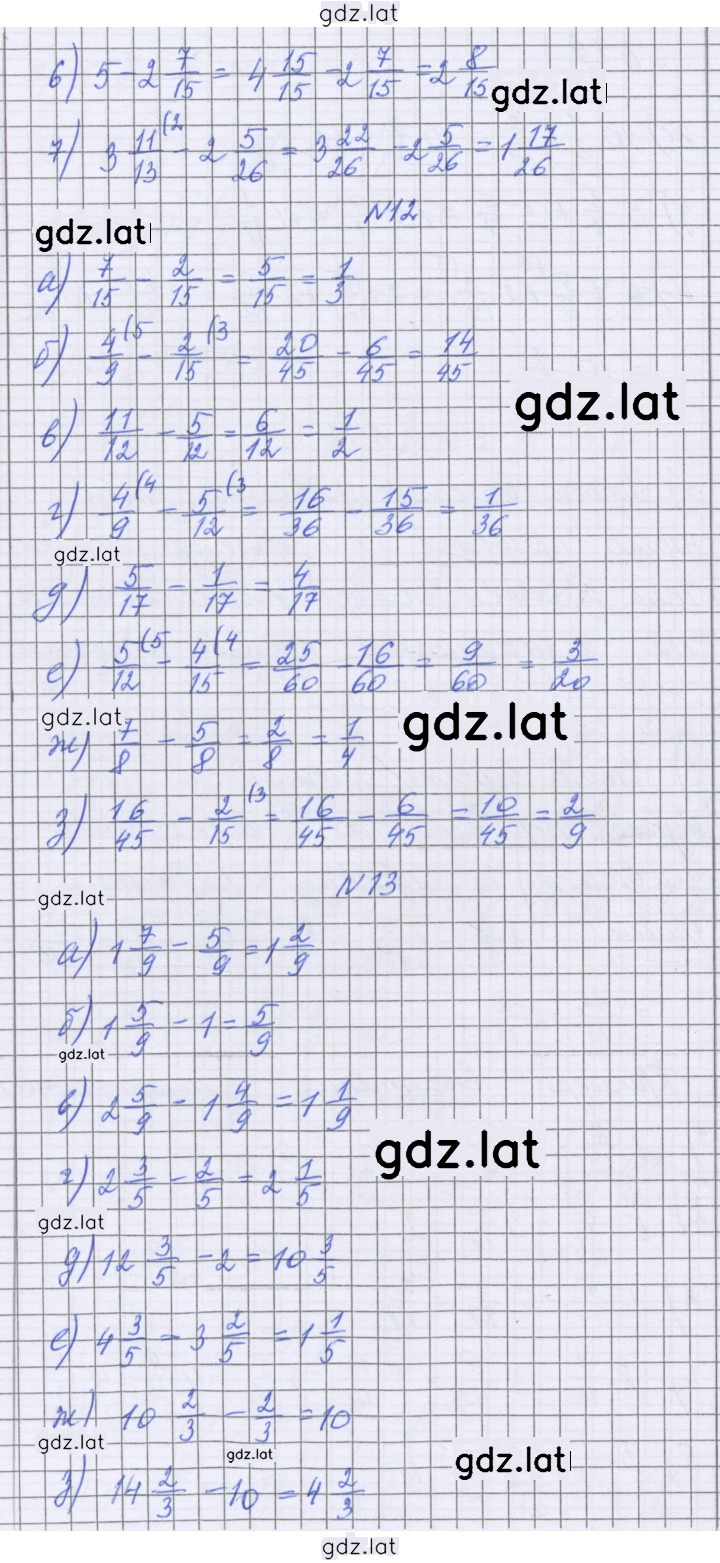 gdz.lat
6) 5 - 2 7/15 = 4 15/15 - 2 7/15 = 2 8/15
gdz.lat
7) 3 11/13 (2 - 2 5/26 = 3 22/26 - 2 5/26 = 1 17/26
N12
gdz.lat
а) 7/15 - 2/15 = 5/15 = 1/3
б) 4/9 (5 - 2/15 (3 = 20/45 - 6/45 = 14/45
gdz.lat
в) 11/12 - 5/12 = 6/12 = 1/2
г) 4/9 (4 - 5/12 (3 = 16/36 - 15/36 = 1/36
gdz.lat
д) 5/17 - 1/17 = 4/17
е) 5/12 (5 - 4/15 (4 = 25/60 - 16/60 = 9/60 = 3/20
gdz.lat
gdz.lat
ж) 7/8 - 5/8 = 2/8 = 1/4
з) 16/45 - 2/15 (3 = 16/45 - 6/45 = 10/45 = 2/9
N13
gdz.lat
а) 1 7/9 - 5/9 = 1 2/9
б) 1 5/9 - 1 = 5/9
gdz.lat
в) 2 5/9 - 1 4/9 = 1 1/9
gdz.lat
г) 2 3/5 - 2/5 = 2 1/5
gdz.lat
д) 12 3/5 - 2 = 10 3/5
е) 4 3/5 - 3 2/5 = 1 1/5
ж) 10 2/3 - 2/3 = 10
gdz.lat
gdz.lat
gdz.lat
з) 14 2/3 - 10 = 4 2/3
gdz.lat